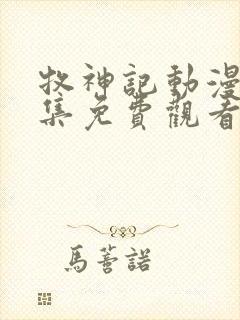 牧神記動漫
集免費觀看
馬薈諾